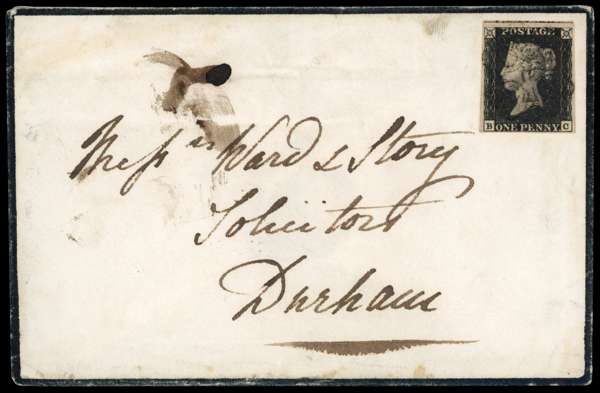 POSTAGE
B ONE PENNY C
Messrs Ward & Story
Solicitors
Durham